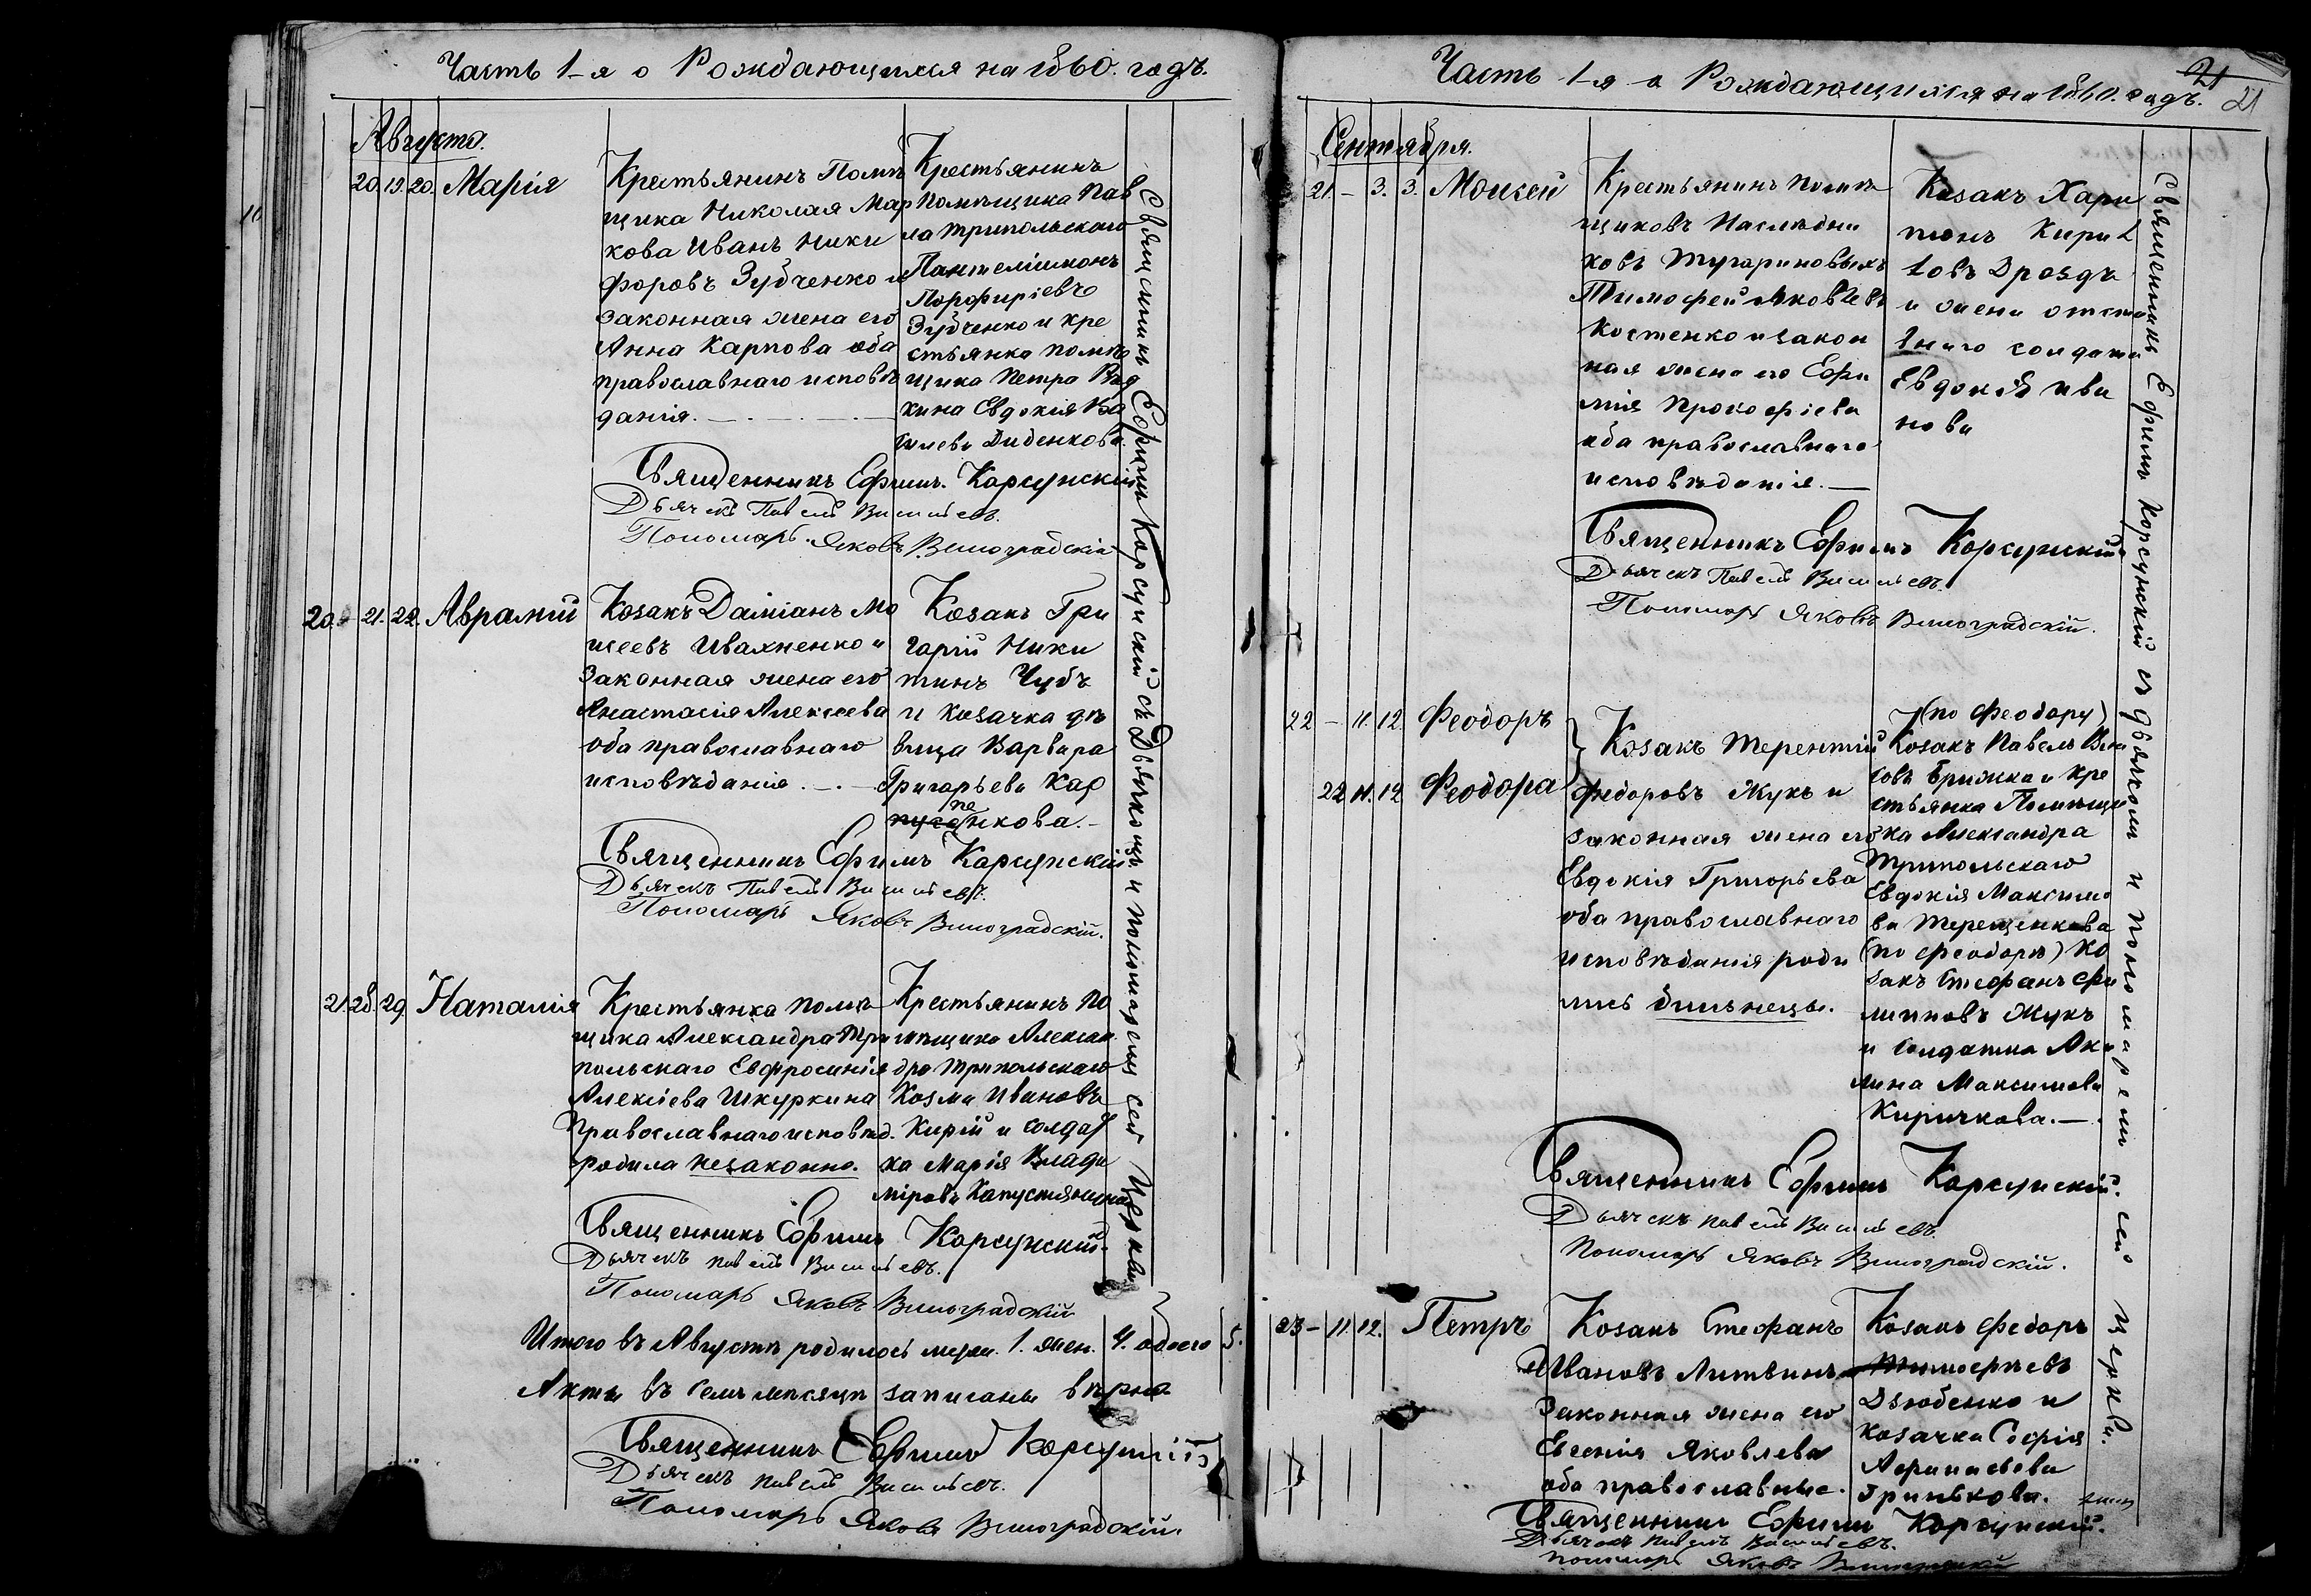 Часть 1-я о Рождающихся на 1860. годъ.
Августа.
20. 19. 20. Марія
Крестьянинъ Помѣ
щика Николая Мар
кова Иванъ Ники
форовъ Зубченко и
законная жена его
Анна Карпова оба
православнаго исповѣ
данія.
Крестьянинъ
Помѣщика Пав
ла Трипольскаго
Пантелимонъ
Порфиріевъ
Зубченко и кре
стьянка помѣ
щика Петра
Евдокія Ва
сильева Диденкова.
Священникъ Ефимъ Корсунскій
Дьячекъ Павелъ Васильевъ.
Пономарь Яковъ Виноградскій
20. - 21. 22. Аврамій
Козакъ Даміанъ Мо
исеевъ Ивахненко и
законная жена его
Анастасія Алексеева
оба православнаго
исповѣданія.
Козакъ Гри
горій Ники
тинъ Чубъ
и козачка дѣ
вица Варвара
Григорьева Кар
пе
нкова.
Священникъ Ефимъ Корсунскій
Дьячекъ Павелъ Васильевъ.
Пономарь Яковъ Виноградскій.
21. 28. 29. Наталія
Крестьянка помѣ
щика Александра Три
польскаго Евфросинія
Алексіева Шкуркина
Православнаго исповѣд.
родила незаконно.
Крестьянинъ по
мѣщика Алексан
дра Трипольскаго
Козма Ивановъ
Кирій и солдат
ка Марія Влади
мірова Капустянская
Священникъ Ефимъ Корсунскій.
Дьячекъ Павелъ Васильевъ.
Пономарь Яковъ Виноградскій
Итого въ Августѣ родилось муж. 1. жен. 4. обоего 5.
Акты въ семъ мѣсяцѣ записаны вѣрно
Священникъ Ефимъ Корсунскій
Дьячекъ Павелъ Васильевъ.
Пономарь Яковъ Виноградскій.
Священникъ Ефимъ Корсунскій съ Дьячкомъ и пономаремъ сей Церкви
Часть 1-я о Рождающихся на 1860. годъ.
21
21
Сентября.
21. - 3. 3. Моисей
Крестьянинъ помѣ
щиковъ Наслѣдни
ковъ Тугариновыхъ
Тимофей Яковлевъ
Костенко и закон
ная жена его Ефи
мія Прокофіева
оба православнаго
исповѣданія.
Козакъ Хари
тонъ Кирил
ловъ Дроздъ
и жена отста
внаго солдата
Евдокія Ива
нова
Священникъ Ефимъ Корсунскій
Дьячекъ Павелъ Васильевъ.
Пономарь Яковъ Виноградскій.
22 - 11. 12. Феодоръ
22 11. 12 Феодора
Козакъ Терентій
Федоровъ Жукъ и
законная жена его
Евдокія Григорьева
оба православнаго
исповѣданія роди
лись близнецы.
(по Феодору)
Козакъ Павелъ
Брижка и кре
стьянка Помѣщи
ка Александра
Трипольскаго
Евдокія Максимо
ва Терещенкова
(по Феодорѣ) Ко
закъ Стефанъ Фи
липповъ Жукъ
и солдатка Аку
лина Максимова
Киричкова.
Священникъ Ефимъ Корсунскій.
Дьячекъ Павелъ Васильевъ.
Пономарь Яковъ Виноградскій.
23 - 11. 12. Петръ
Козакъ Стефанъ
Ивановъ Литвинъ
законная жена его
Евгенія Яковлева
оба православные.
Козакъ Федоръ
Тимофеевъ
Дзюбенко и
козачка Софія
Афанасьева
Гринькова.
Священникъ Ефимъ Корсунскій.
Дьячекъ Павелъ Васильевъ.
Пономарь Яковъ Виноградскій
Священникъ Ефимъ Корсунскій съ дьячкомъ и пономаремъ сей церкви.